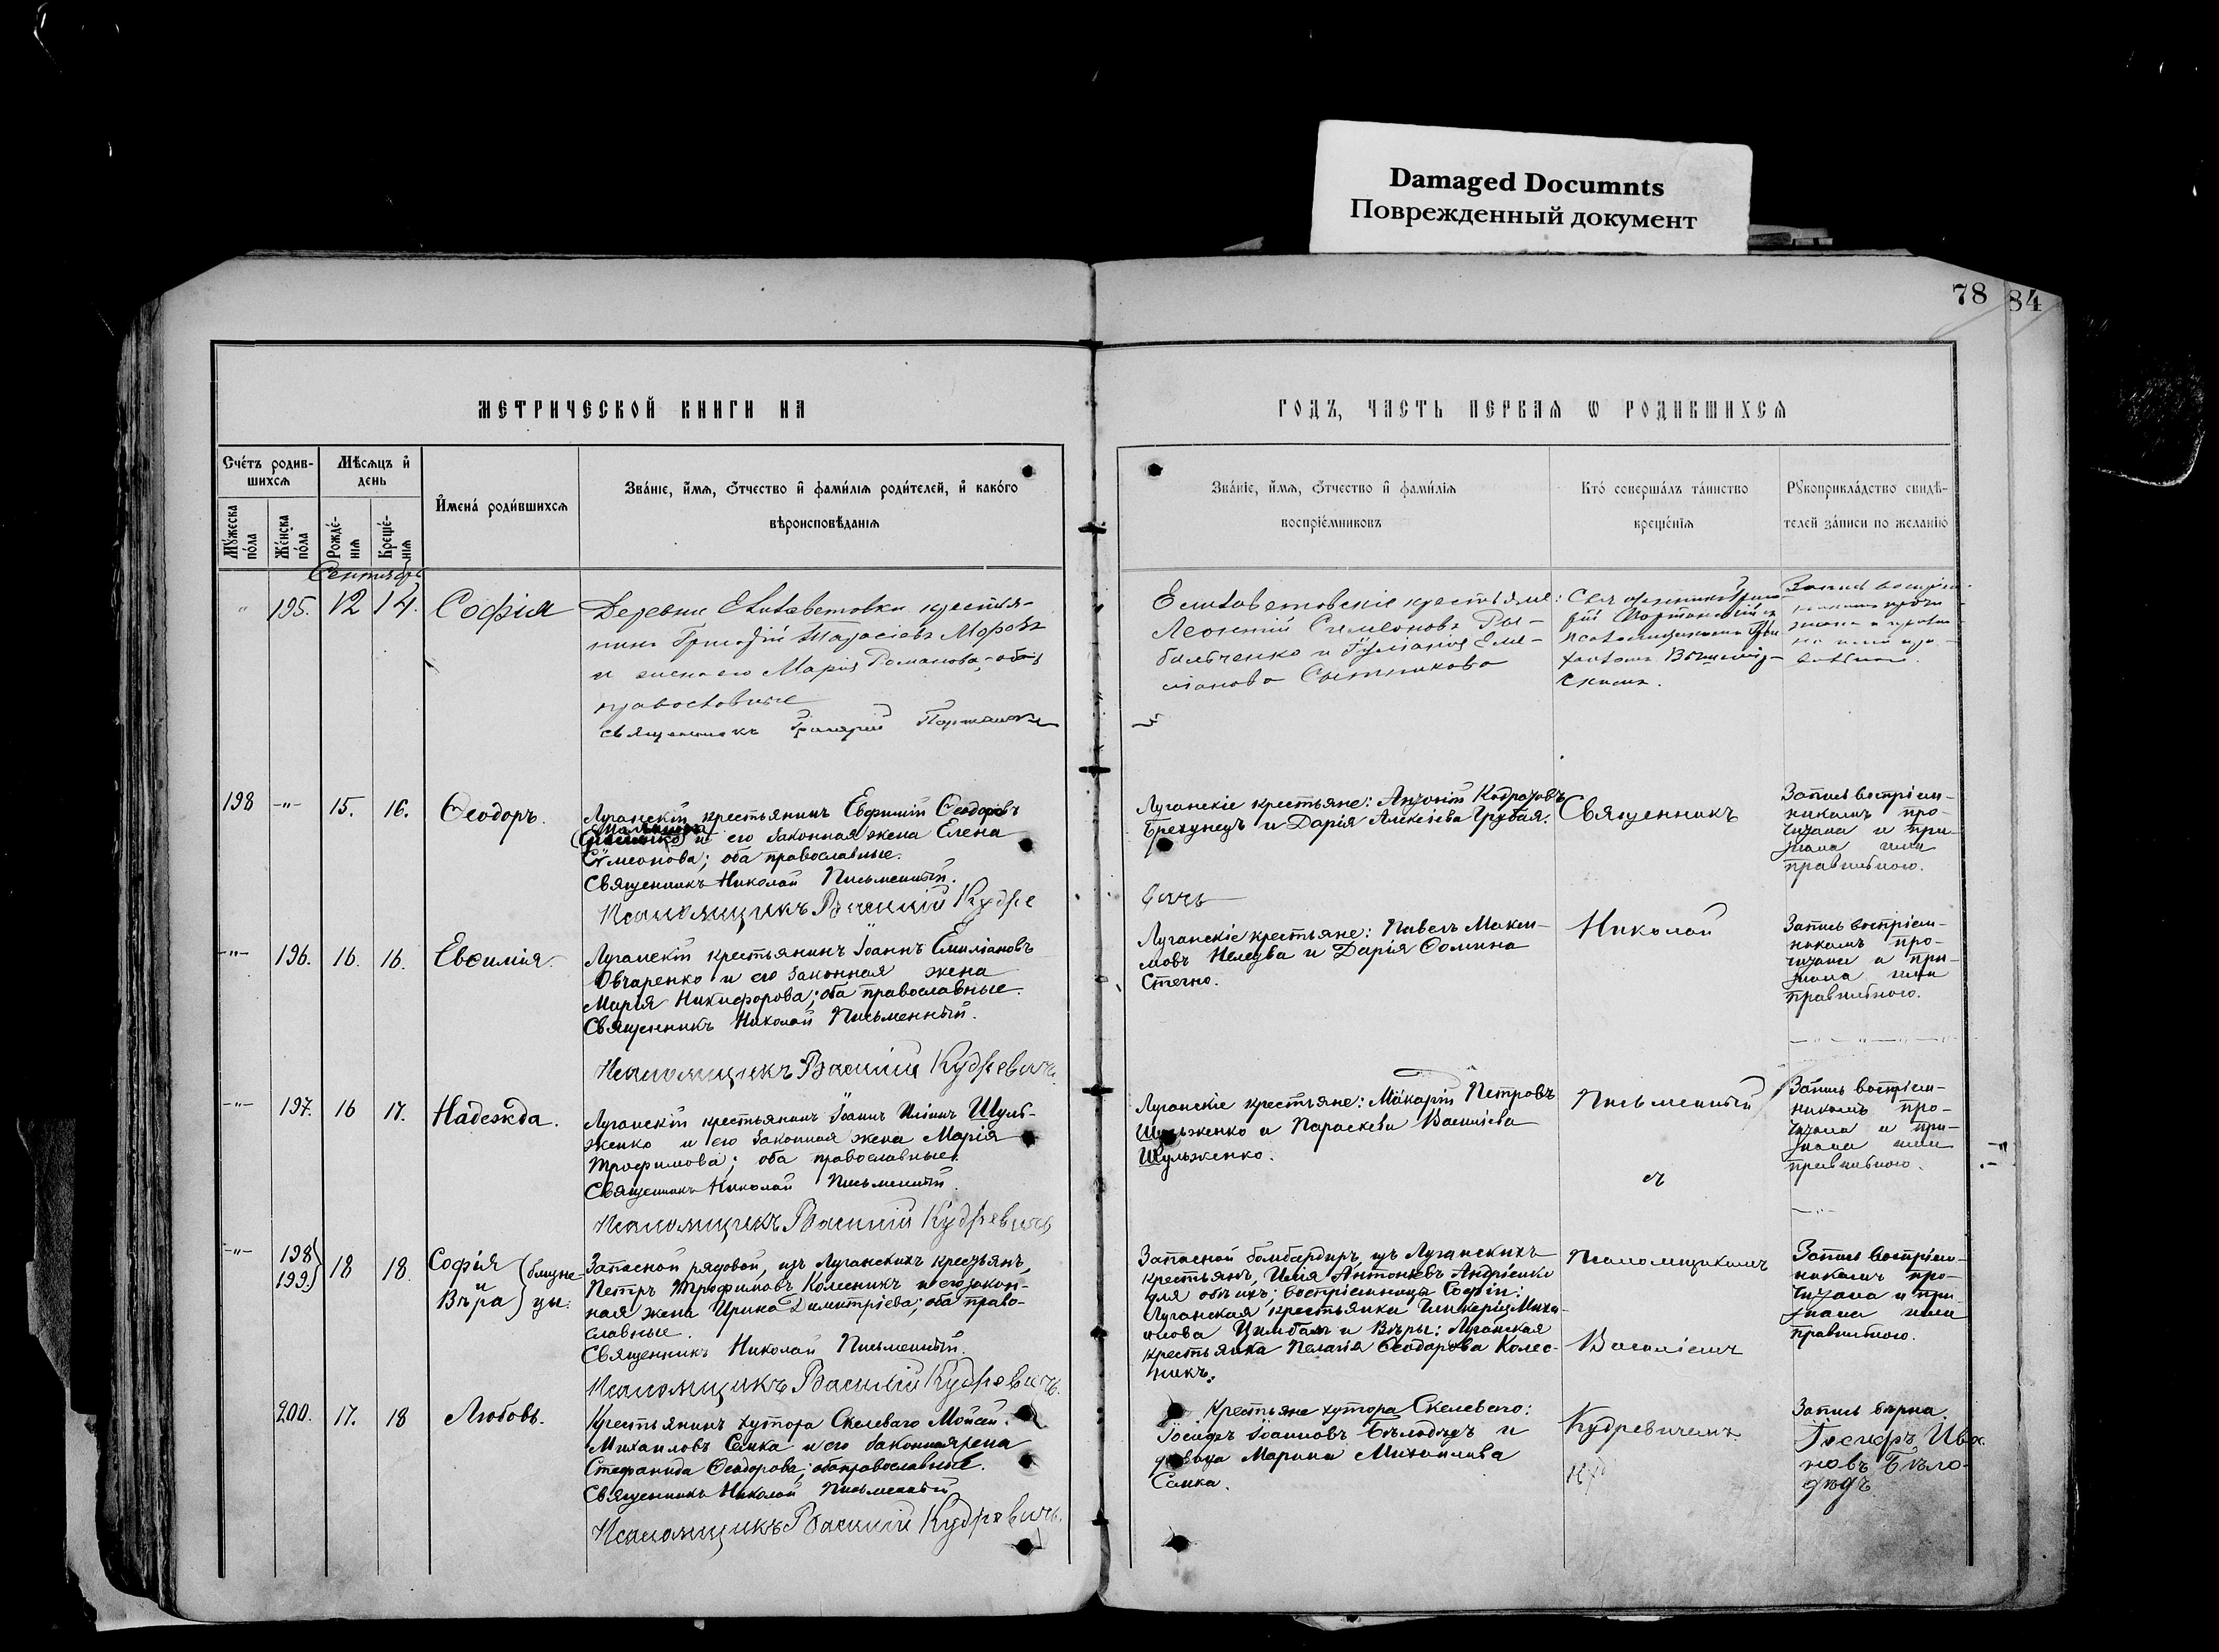 Damaged Documnts
Поврежденный документ
78 84
МЕТРИЧЕСКОЙ КНИГИ НА
ГОДЪ, ЧАСТЬ ПЕРВАЯ Ѡ РОДИВШИХСЯ
Счéтъ родив-
шихся
Мѣсяцъ и҆
день
Мꙋ́жеска
пóла
Жéнска
пóла
Рождé-
нія
Крещé-
нія
И҆менá роди́вшихся
Звáніе, и҆́мя, ѻ҆́тчество и҆ фами́лія роди́телей, и҆ какóго
вѣроисповѣ́данія
Звáніе, и҆́мя, ѻ҆́тчество и҆ фами́лія
воспріéмниковъ
Ктó совершáлъ тáинство
крещéнія
Рꙋкоприклáдство свидѣ́-
телей зáписи по желáнію
Сентябрь
" 195. 12 14. Софія
Деревни Елизаветовки крестья-
нинъ Григорій Тарасіевъ Морозъ
и жена его Марія Романова, оба
православные
священникъ Григорій
Елизаветовскіе крестьяне:
Леонтій Симеоновъ Ры-
бальченко и Іуліанія Еме-
ліанова Сытникова
198 -"- 15. 16. Ѳеодоръ.
Луганскій крестьянинъ Евфимій Ѳеодоровъ
и его законная жена Елена
Сѵмеонова; оба православные.
Священникъ Николай Письменный.
Псаломщикъ Василій Кудре
вичъ
Луганскіе крестьяне: Антоній Кодратовъ
Брехунецъ и Дарія Алексіева Грубая.
Священникъ
Запись воспріем-
никамъ про-
читана и при-
знана ими
правильною.
-"- 196. 16. 16. Евѳимія.
Луганскій крестьянинъ Іоаннъ Емиліановъ
Овчаренко и его законная жена
Марія Никифорова; оба православные.
Священникъ Николай Письменный.
Псаломщикъ Василій Кудревичъ.
Луганскіе крестьяне: Павелъ Макси-
мовъ и Дарія Ѳомина
Стегно.
Николай
Запись воспріем-
никамъ про-
читана и при-
знана ими
правильною.
-"- 197. 16 17. Надежда.
Луганскій крестьянинъ Іоаннъ Иліинъ Шуль-
женко и его законная жена Марія
Трофимова; оба православные.
Священникъ Николай Письменный.
Псаломщикъ Василій Кудревичъ
Луганскіе крестьяне: Макарій Петровъ
Шульженко и Параскева Васильева
Шульженко.
Письменный
съ
Запись воспріем-
никамъ про-
читана и при-
знана ими
правильною.
-"- 198 199 18 18. Софія и Вѣра (близне-
цы.
Запасной рядовой, изъ Луганскихъ крестьянъ,
Петръ Трофимовъ Колесникъ и его закон-
ная жена Ирина Димитріева; оба право-
славные.
Священникъ Николай Письменный.
Псаломщикъ Василій Кудревичъ.
Запасной бомбардиръ, изъ Луганскихъ
крестьянъ, Илія Антоніевъ Андріенко
для обѣихъ; воспріемницы Софіи:
Луганская крестьянка Гликерія Миха-
илова Цимбалъ и Вѣры: Луганская
крестьянка Пелагія Ѳеодорова Колес-
никъ.
Псаломщикомъ
Василіемъ
Запись воспріем-
никамъ про-
читана и при-
знана ими
правильною.
200. 17. 18 Любовь.
Крестьянинъ хутора Скелеваго Моисей
Михаиловъ Семка и его законная жена
Стефанида Ѳеодорова; оба православные.
Священникъ Николай Письменный
Псаломщикъ Василій Кудревичъ.
Крестьяне хутора Скелеваго:
Іосифъ Іоанновъ Бѣлодѣдъ и
дѣвица Марина Михаилова
Семка.
Кудревичемъ.
Запись вѣрна.
Іосифъ Ива
новъ Бѣло-
дѣдъ